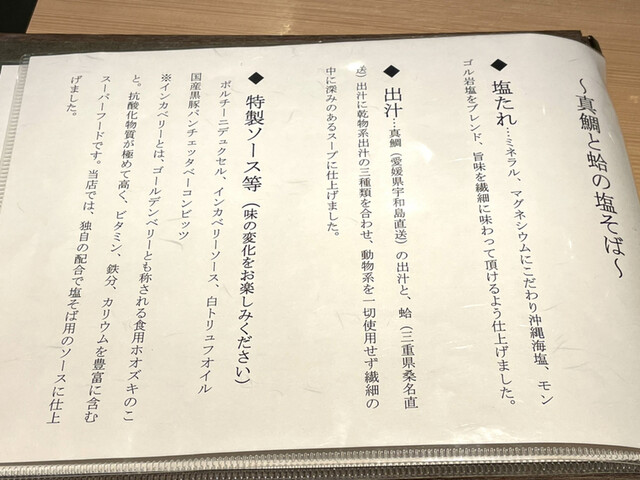 ～真鯛と蛤の塩そば～
◆ 塩たれ…ミネラル、マグネシウムにこだわり沖縄海塩、モン
ゴル岩塩をブレンド、旨味を繊細に味わって頂けるよう仕上げました。
◆ 出汁…真鯛（愛媛県宇和島直送）の出汁と、蛤（三重県桑名直
送）出汁に乾物系出汁の三種類を合わせ、動物系を一切使用せず繊細の
中に深みのあるスープに仕上げました。
◆ 特製ソース等（味の変化をお楽しみください）
ポルチーニデュクセル、インカベリーソース、白トリュフオイル
国産黒豚パンチェッタベーコンビッツ
※インカベリーとは、ゴールデンベリーとも称される食用ホオズキのこ
と。抗酸化物質が極めて高く、ビタミン、鉄分、カリウムを豊富に含む
スーパーフードです。当店では、独自の配合で塩そば用のソースに仕上
げました。